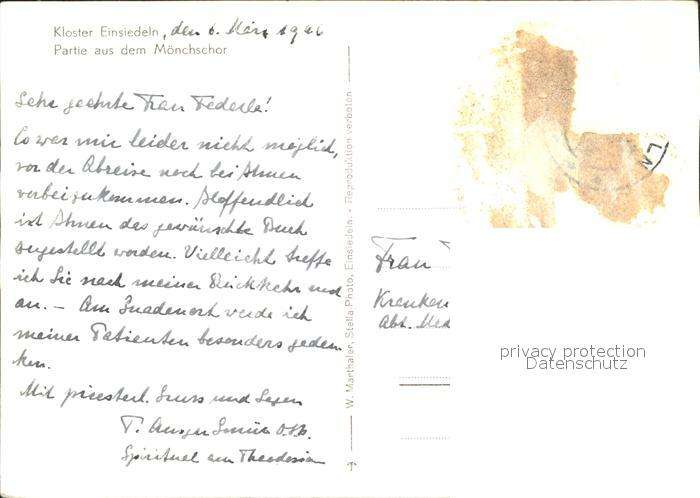 Kloster Einsiedeln, den 6. März 1946
Partie aus dem Mönchschor
Sehr geehrte Frau Federle!
Es war mir leider nicht möglich,
vor der Abreise noch bei Ihnen
vorbeizukommen. Hoffentlich
ist Ihnen das gewünschte Buch
zugestellt worden. Vielleicht treffe
ich Sie nach meiner Rückkehr noch
an. – Am Gnadenort werde ich
meiner Patienten besonders geden
ken.
Mit priesterl. Gruss und Segen
P. O.S.B.
Spiritual am Theodosian
W. Marthaler, Stella-Photo, Einsiedeln. - Reproduktion verboten
LN
Frau
Kranken
Abt. Med
privacy protection
Datenschutz